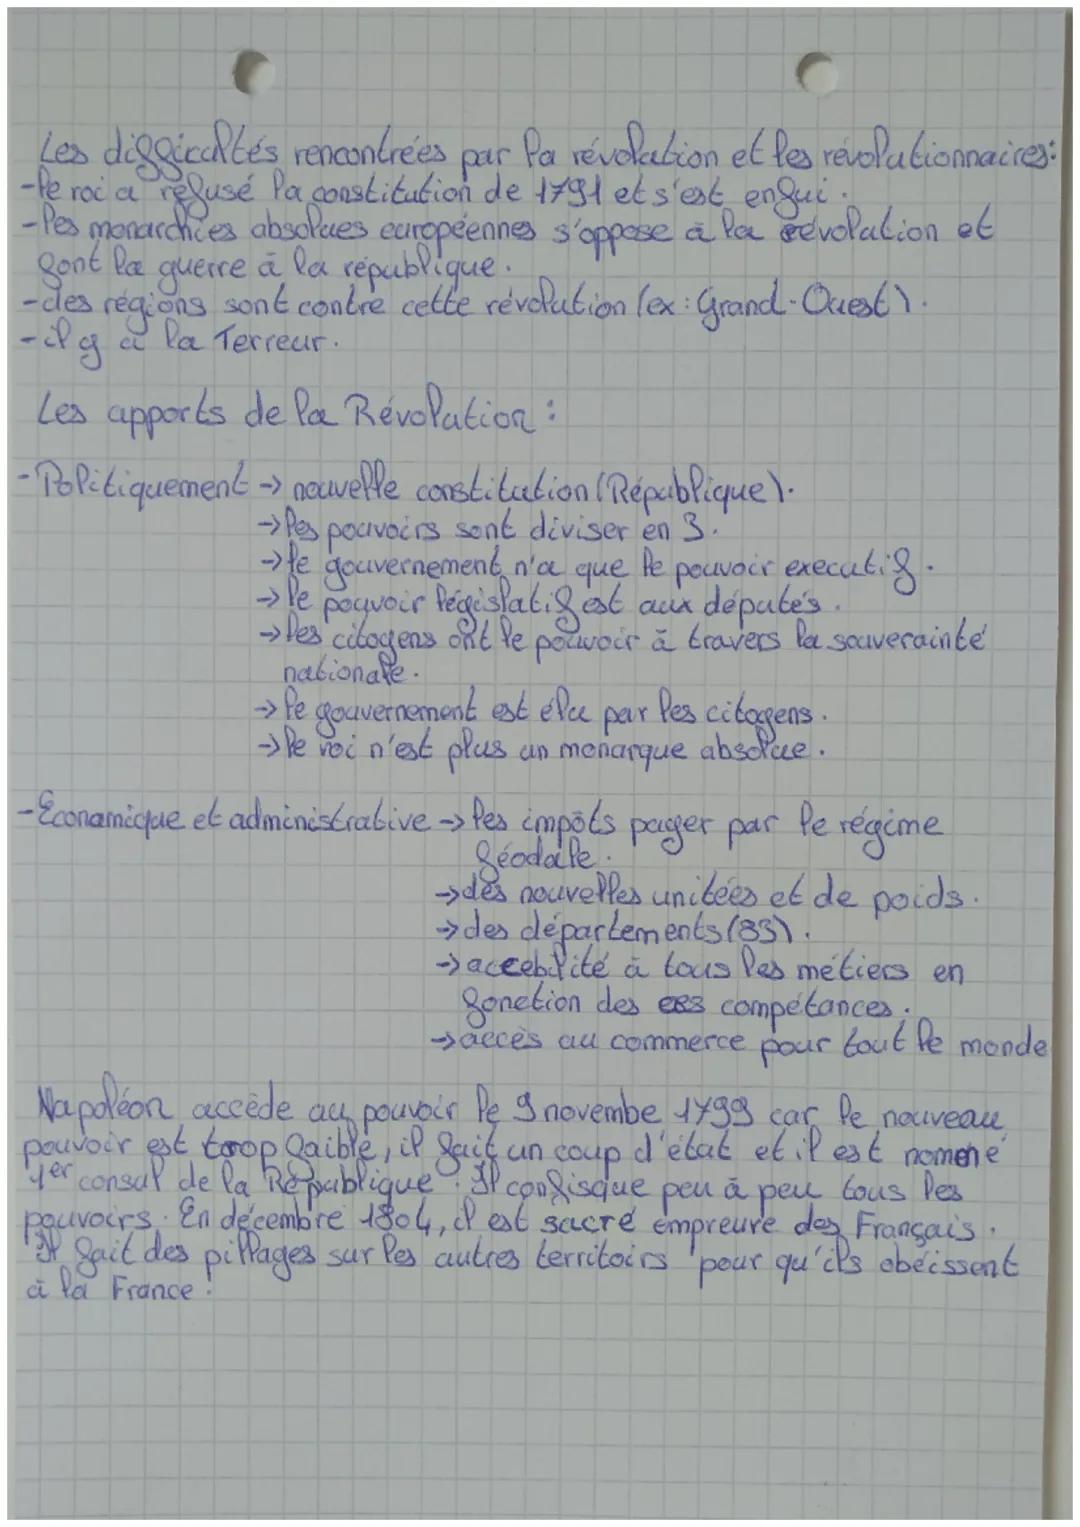 Les difficultés rencontrées par la révolution et les révolutionnaires:
-le roi a refusé la constitution de 1791 et s'est enfui.
-les monarchies absolues européennes s'oppose à la révolution et
font la guerre à la république.
-des régions sont contre cette révolution (ex: Grand-Ouest).
-il y a la Terreur.
Les apports de la Révolution:
-Politiquement → nouvelle constitution (République).
→ les pouvoirs sont diviser en 3.
→ le gouvernement n'a que le pouvoir executif.
→ le pouvoir législatif est aux députés.
→ les citoyens ont le pouvoir à travers la souverainté
nationale.
→ le gouvernement est élu par les citoyens.
→ le roi n'est plus un monarque absolue.
-Économique et administrative → les impôts payer par le régime
féodale.
→ des nouvelles unitées et de poids.
→ des départements (83).
→ accebilité à tous les métiers en
fonction des compétances.
→ accès au commerce pour tout le monde
Napoléon accède au pouvoir le 9 novembe 1799 car le nouveau
pouvoir est trop faible, il fait un coup d'état et il est nommé
1er consul de la République. Il confisque peu à peu tous les
pouvoirs. En décembre 1804, il est sacré empreure des Français.
Il fait des pillages sur les autres territoirs pour qu'ils obéissent
à la France.